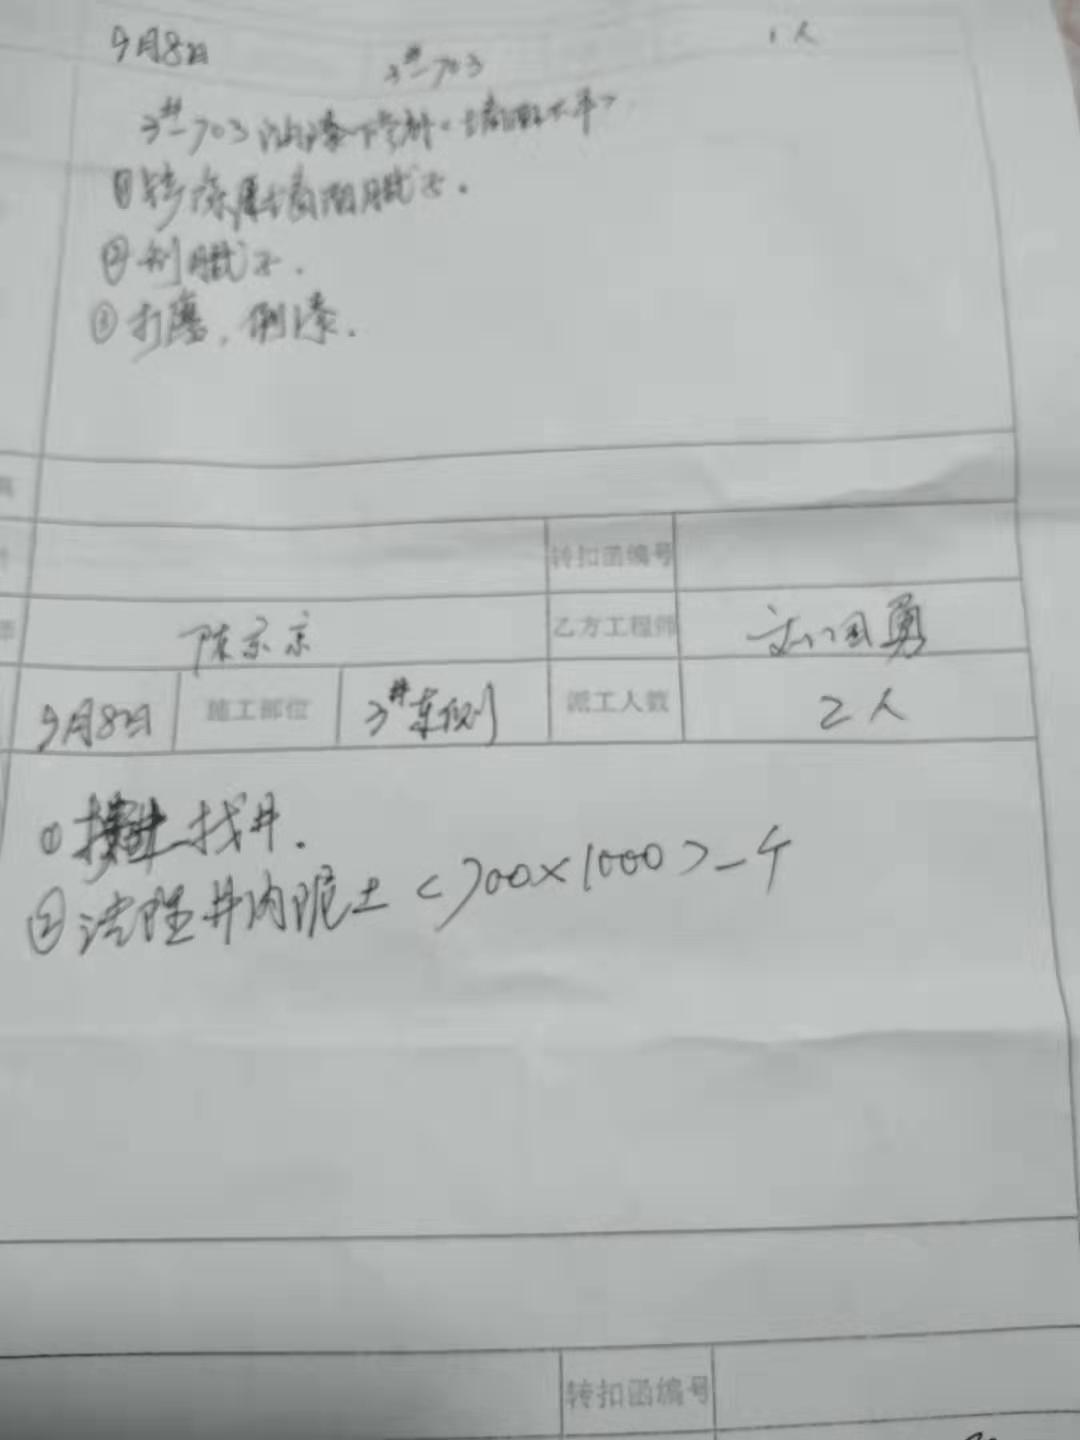 9月8日 3#-703 1人
3#-703
①铲除原墙面腻子.
②刮腻子.
③打磨,刷漆.
转扣函编号
陈京京 乙方工程师 刘国勇
9月8日 施工部位 3#东侧 派工人数 2人
① 找井.
②清理井内泥土<700×1000>一个
转扣函编号